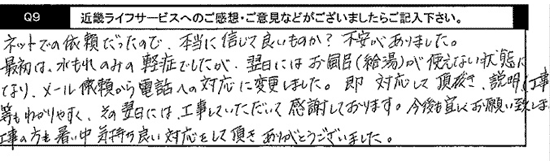 Q9 近畿ライフサービスへのご感想・ご意見などがございましたらご記入下さい。
ネットでの依頼だったので、本当に信じて良いものか？不安がありました。
最初は、水もれのみの軽症でしたが、翌日にはお風呂(給湯)が使えない状態に
なり、メール依頼から電話への対応に変更しました。即 対応して頂き、説明、工事
等もわかりやすく、その翌日には、工事していただいて感謝しております。今後も宜しくお願い致しま
工事の方も暑い中 気持の良い対応をして頂きありがとうございました。